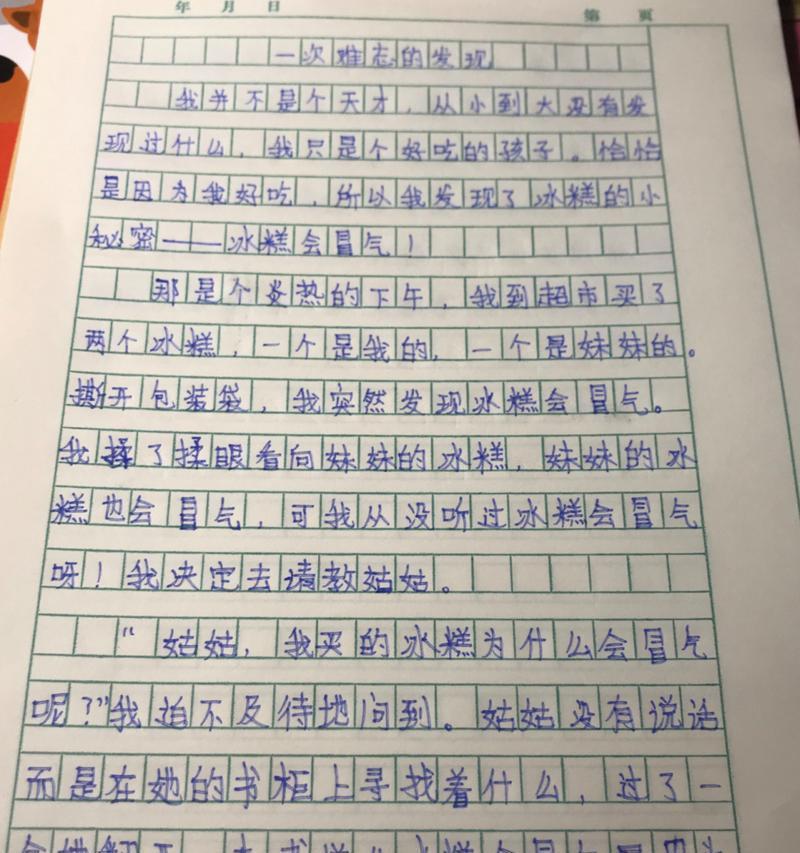 年 月 日 第 页
一次难忘的发现
我并不是个天才，从小到大没有发
现过什么，我只是个好吃的孩子。恰恰
是因为我好吃，所以我发现了冰糕的小
秘密——冰糕会冒气！
那是个炎热的下午，我到超市买了
两个冰糕，一个是我的，一个是妹妹的。
撕开包装袋，我突然发现冰糕会冒气。
我揉了揉眼看向妹妹的冰糕，妹妹的冰
糕也会冒气，可我从没听过冰糕会冒气
呀！我决定去请教姑姑。
“姑姑，我买的冰糕为什么会冒气
呢？”我迫不及待地问到。姑姑没有说话
而是在她的书柜上寻找着什么，过了一